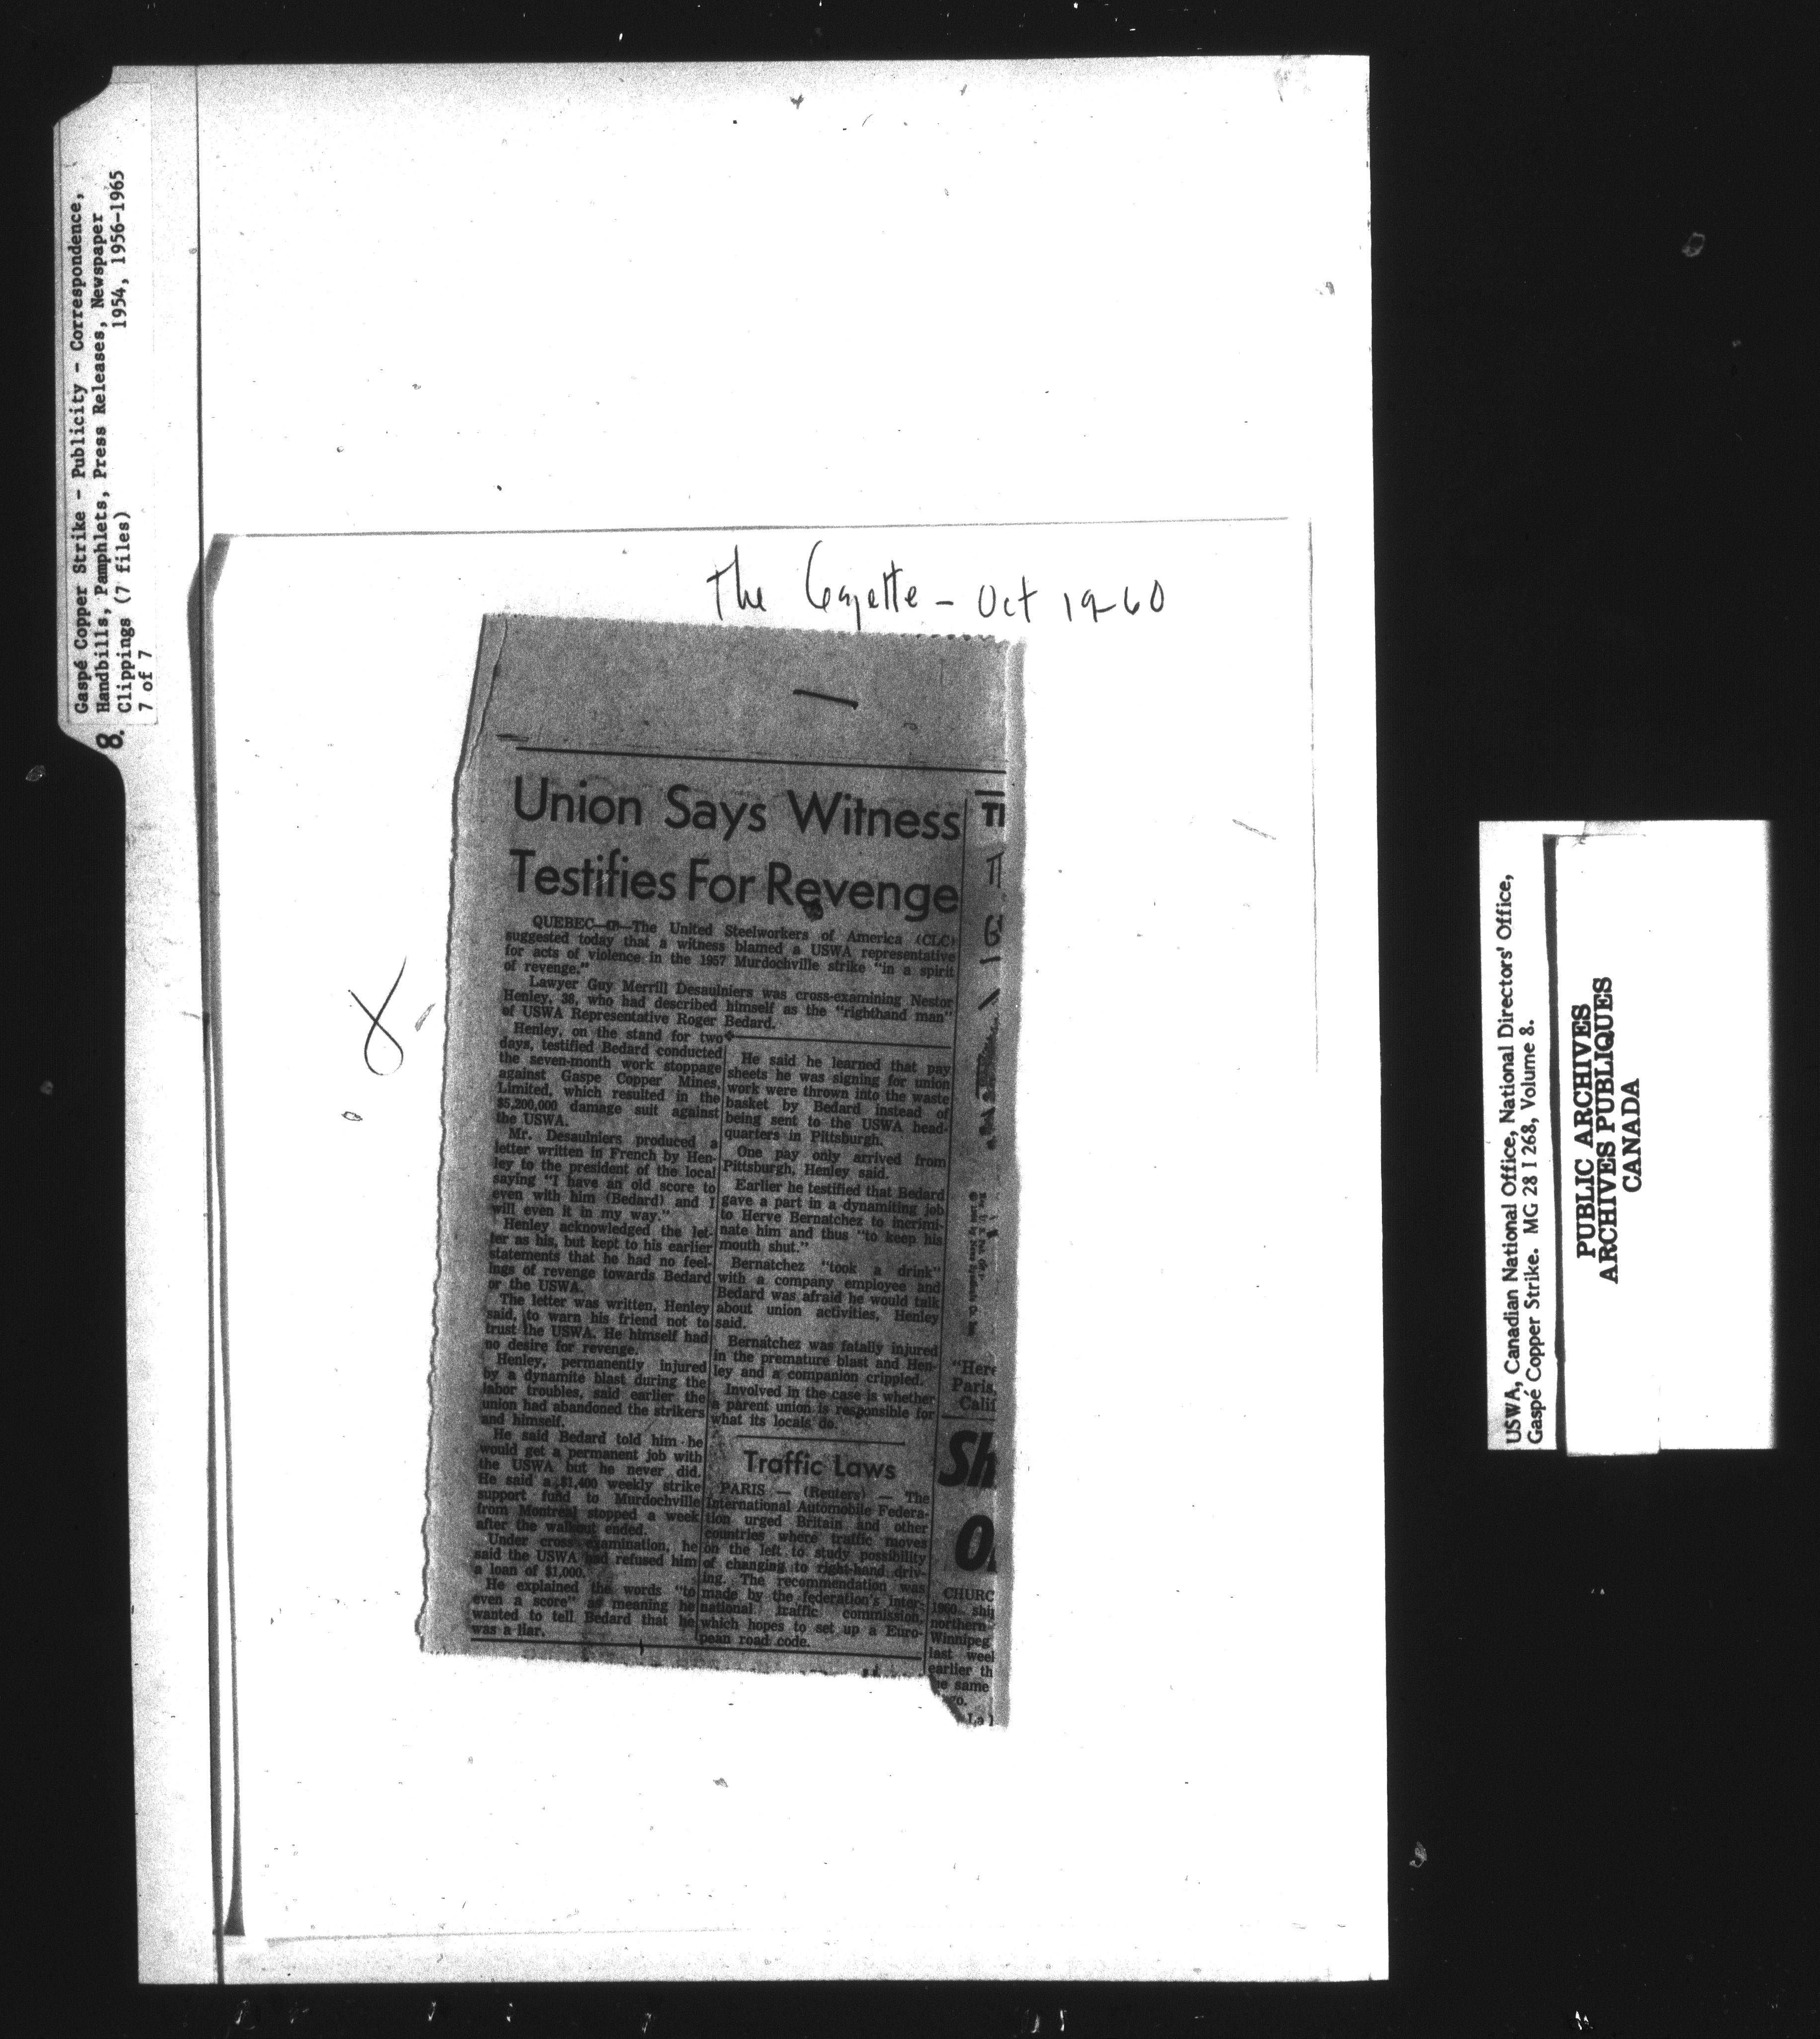 Gaspé Copper Strike - Publicity - Correspondence,
Handbills, Pamphlets, Press Releases, Newspaper
Clippings (7 files) 1954, 1956-1965
7 of 7
8.
The Gazette - Oct 19-60
Union Says Witness
Testifies For Revenge
QUEBEC—CP—The United Steelworkers of America (CLC)
suggested today that a witness blamed a USWA representative
for acts of violence in the 1957 Murdochville strike "in a spirit
of revenge."
Lawyer Guy Merrill Desaulniers was cross-examining Nestor
Henley, 38, who had described himself as the "righthand man"
of USWA Representative Roger Bedard.
Henley, on the stand for two
days, testified Bedard conducted
the seven-month work stoppage
against Gaspe Copper Mines,
Limited, which resulted in the
$5,200,000 damage suit against
the USWA.
Mr. Desaulniers produced a
letter written in French by Hen-
ley to the president of the local
saying "I have an old score to
even with him (Bedard) and I
will even it in my way."
Henley acknowledged the let-
ter as his, but kept to his earlier
statements that he had no feel-
ings of revenge towards Bedard
or the USWA.
The letter was written, Henley
said, to warn his friend not to
trust the USWA. He himself had
no desire for revenge.
Henley, permanently injured
by a dynamite blast during the
labor troubles, said earlier the
union had abandoned the strikers
and himself.
He said Bedard told him he
would get a permanent job with
the USWA but he never did.
He said a $1,400 weekly strike
support fund to Murdochville
from Montreal stopped a week
after the walkout ended.
Under cross examination, he
said the USWA had refused him
a loan of $1,000.
He explained the words "to
even a score" as meaning he
wanted to tell Bedard that he
was a liar.
He said he learned that pay
sheets he was signing for union
work were thrown into the waste
basket by Bedard instead of
being sent to the USWA head-
quarters in Pittsburgh.
One pay only arrived from
Pittsburgh, Henley said.
Earlier he testified that Bedard
gave a part in a dynamiting job
to Herve Bernatchez to incrimi-
nate him and thus "to keep his
mouth shut."
Bernatchez "took a drink"
with a company employee and
Bedard was afraid he would talk
about union activities, Henley
said.
Bernatchez was fatally injured
in the premature blast and Hen-
ley and a companion crippled.
Involved in the case is whether
a parent union is responsible for
what its locals do.
Traffic Laws
PARIS — (Reuters) — The
International Automobile Federa-
tion urged Britain and other
countries where traffic moves
on the left to study possibility
of changing to right-hand driv-
ing. The recommendation was
made by the federation's inter-
national traffic commission,
which hopes to set up a Euro-
pean road code.
"Here
Paris,
Calif
Sh
CHURC
1960 ship
northern
Winnipeg
last weel
earlier th
he same
USWA, Canadian National Office, National Directors' Office,
Gaspé Copper Strike. MG 28 I 268, Volume 8.
PUBLIC ARCHIVES
ARCHIVES PUBLIQUES
CANADA